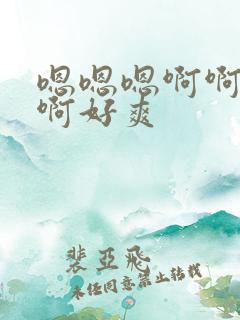 嗯嗯嗯啊啊
啊好爽
裴亚飞
未经同意禁止转载